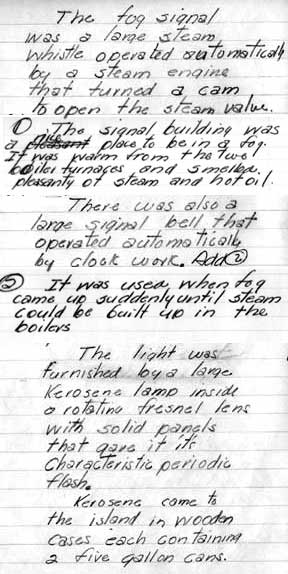 The fog signal
was a large steam
whistle operated automatically
by a steam engine
that turned a cam
to open the steam valve.
① The signal building was
a nice place to be in a fog.
It was warm from the two
boiler furnaces and smelled
pleasantly of steam and hot oil.
There was also a
large signal bell that
operated automatically
by clock work. Add ②
② It was used when fog
came up suddenly until steam
could be built up in the
boilers
The light was
furnished by a large
Kerosene lamp inside
a rotating fresnel lens
with solid panels
that gave it its
Characteristic periodic
flash.
Kerosene came to
the island in wooden
cases each containing
2 five gallon cans.